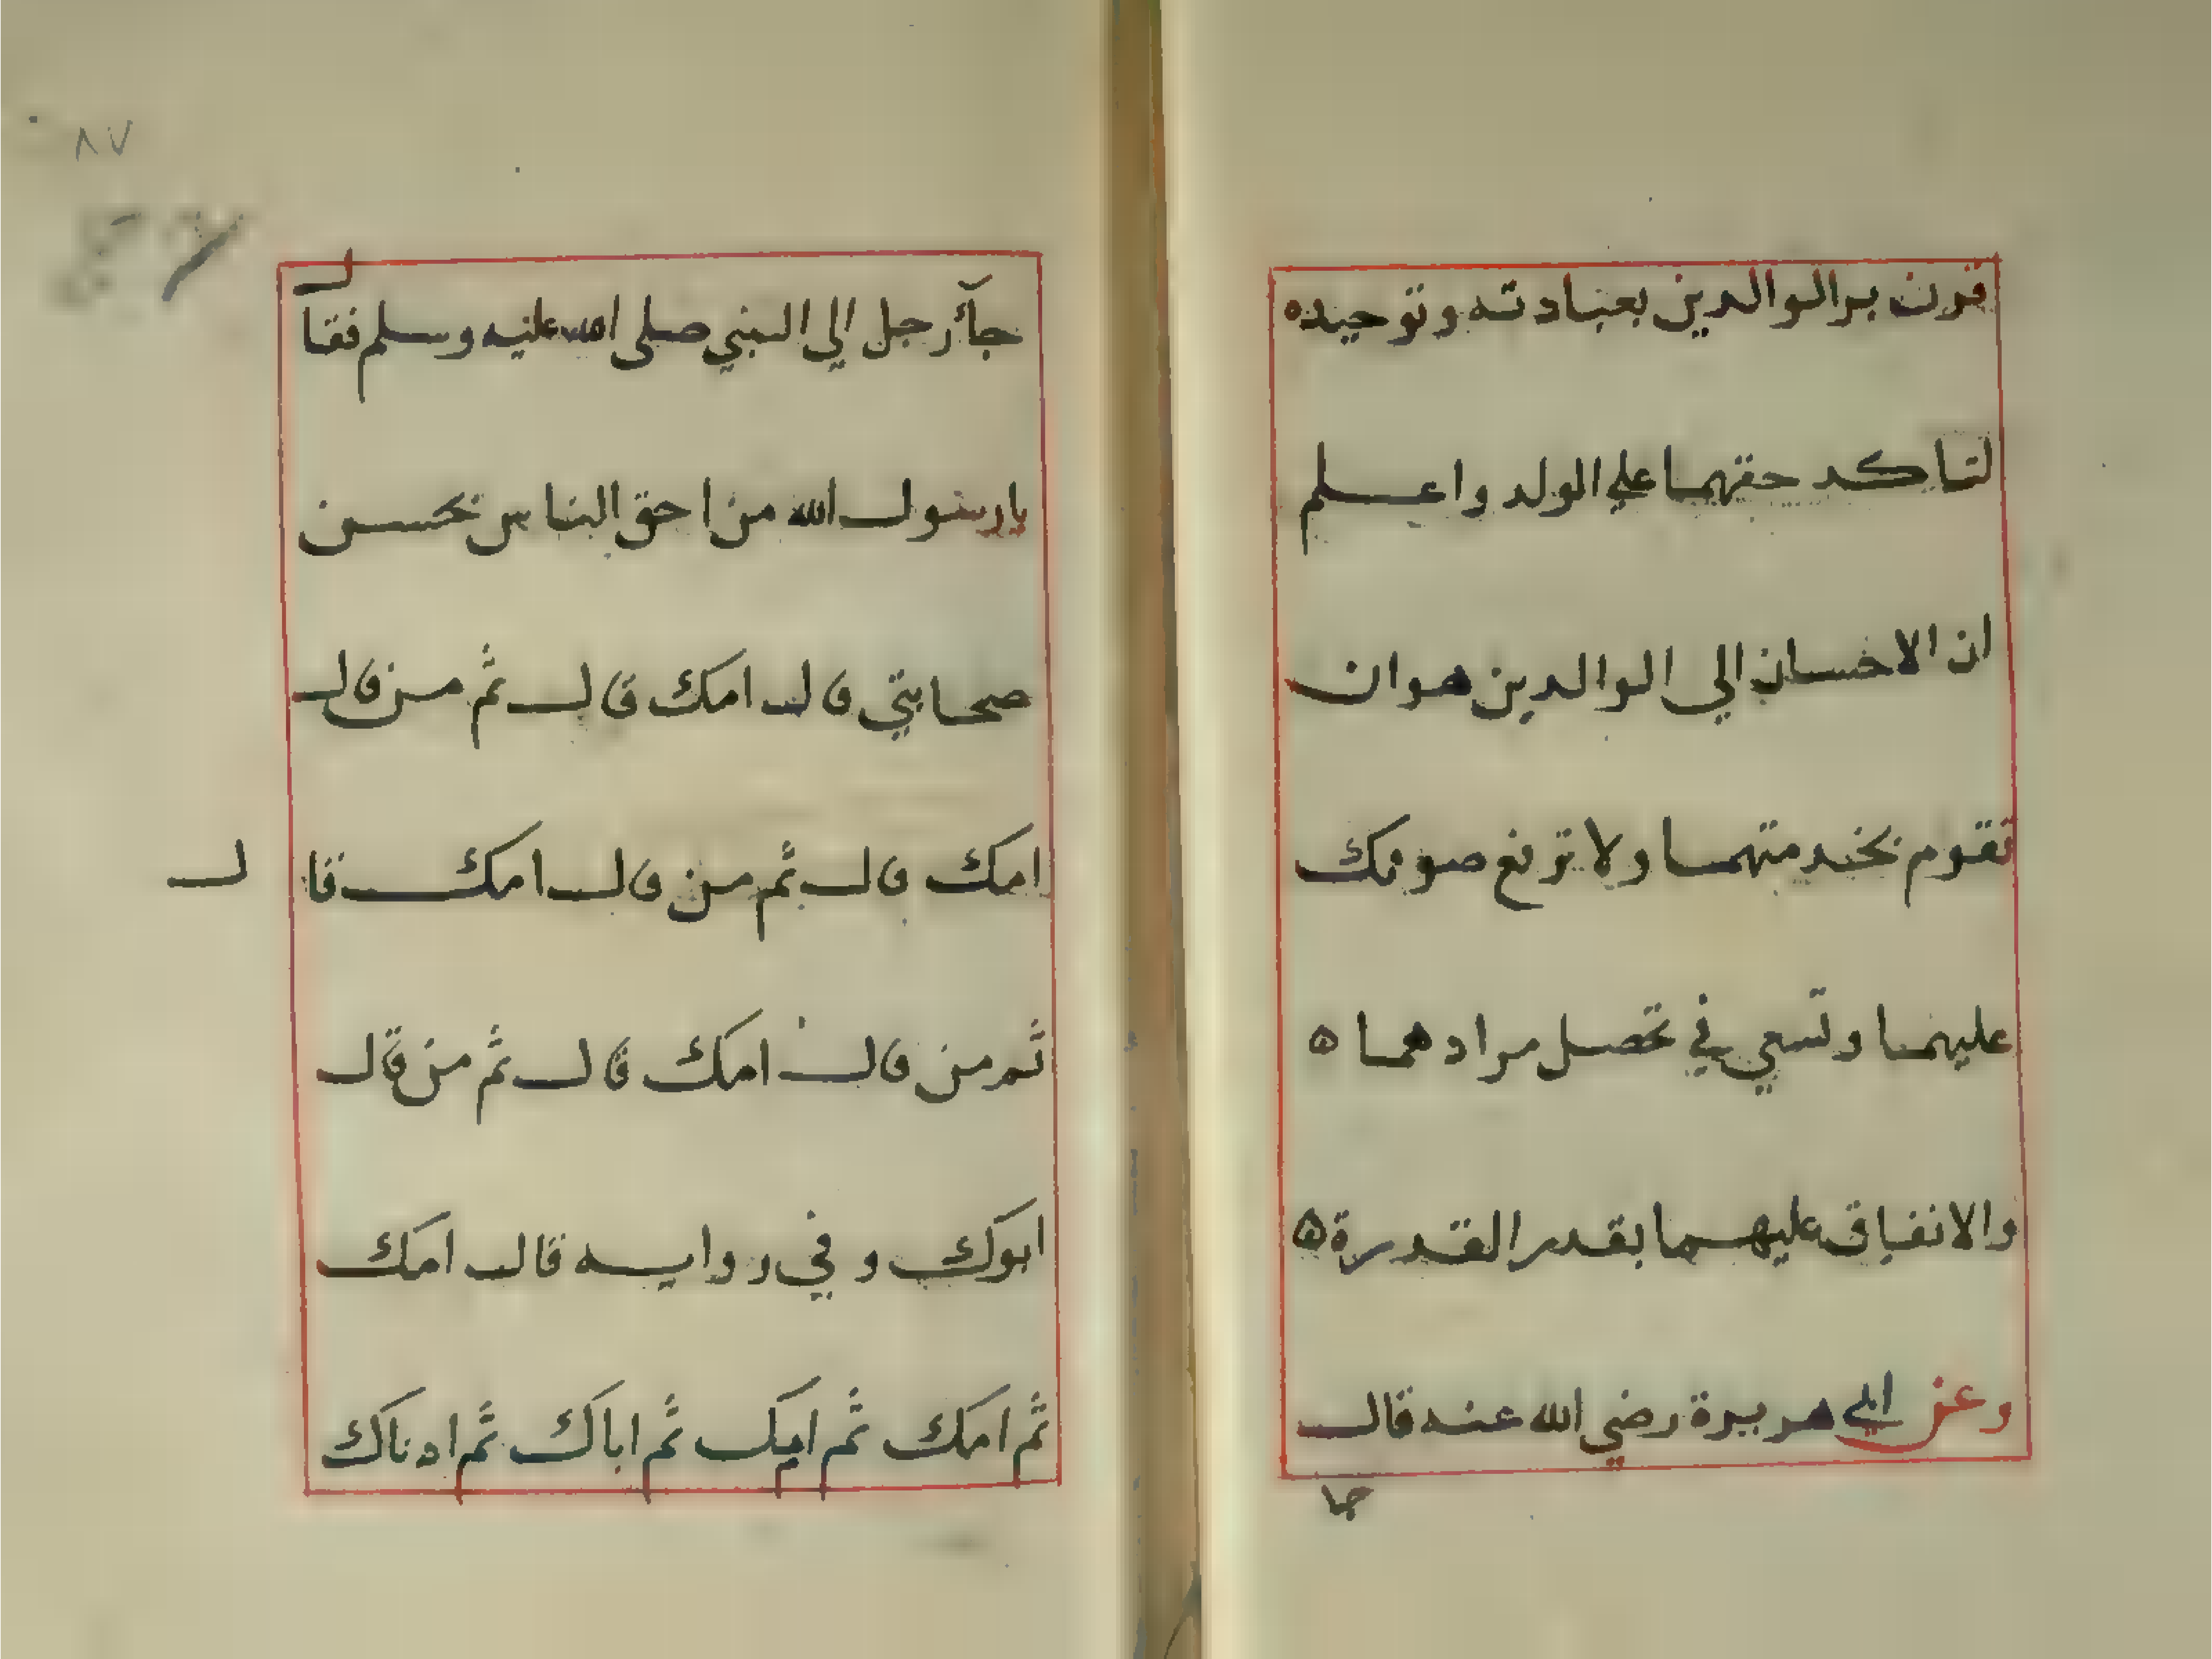 قرن بر الوالدين بعبادته وتوحيده
لتاكد حقهما علي الولد واعلم
ان الاحسان الي الوالدين هو ان
تقوم بخدمتهما ولا ترفع صوتك
عليهما وتسعي في تحصل مرادهما ه
والانفاق عليهما بقدر القدرة ه
وعن ابي هريرة رضي الله عنه قال
جا
٨٧
جآء رجل الي النبي صلى الله عليه وسلم فقال
يا رسول الله من احق الناس بحسن
صحابتي قال امك قال ثم من قال
امك قال ثم من قال امك قال
ثم من قال امك قال ثم من قال
ابوك وفي روايه قال امك
ثم امك ثم امك ثم اباك ثم ادناك